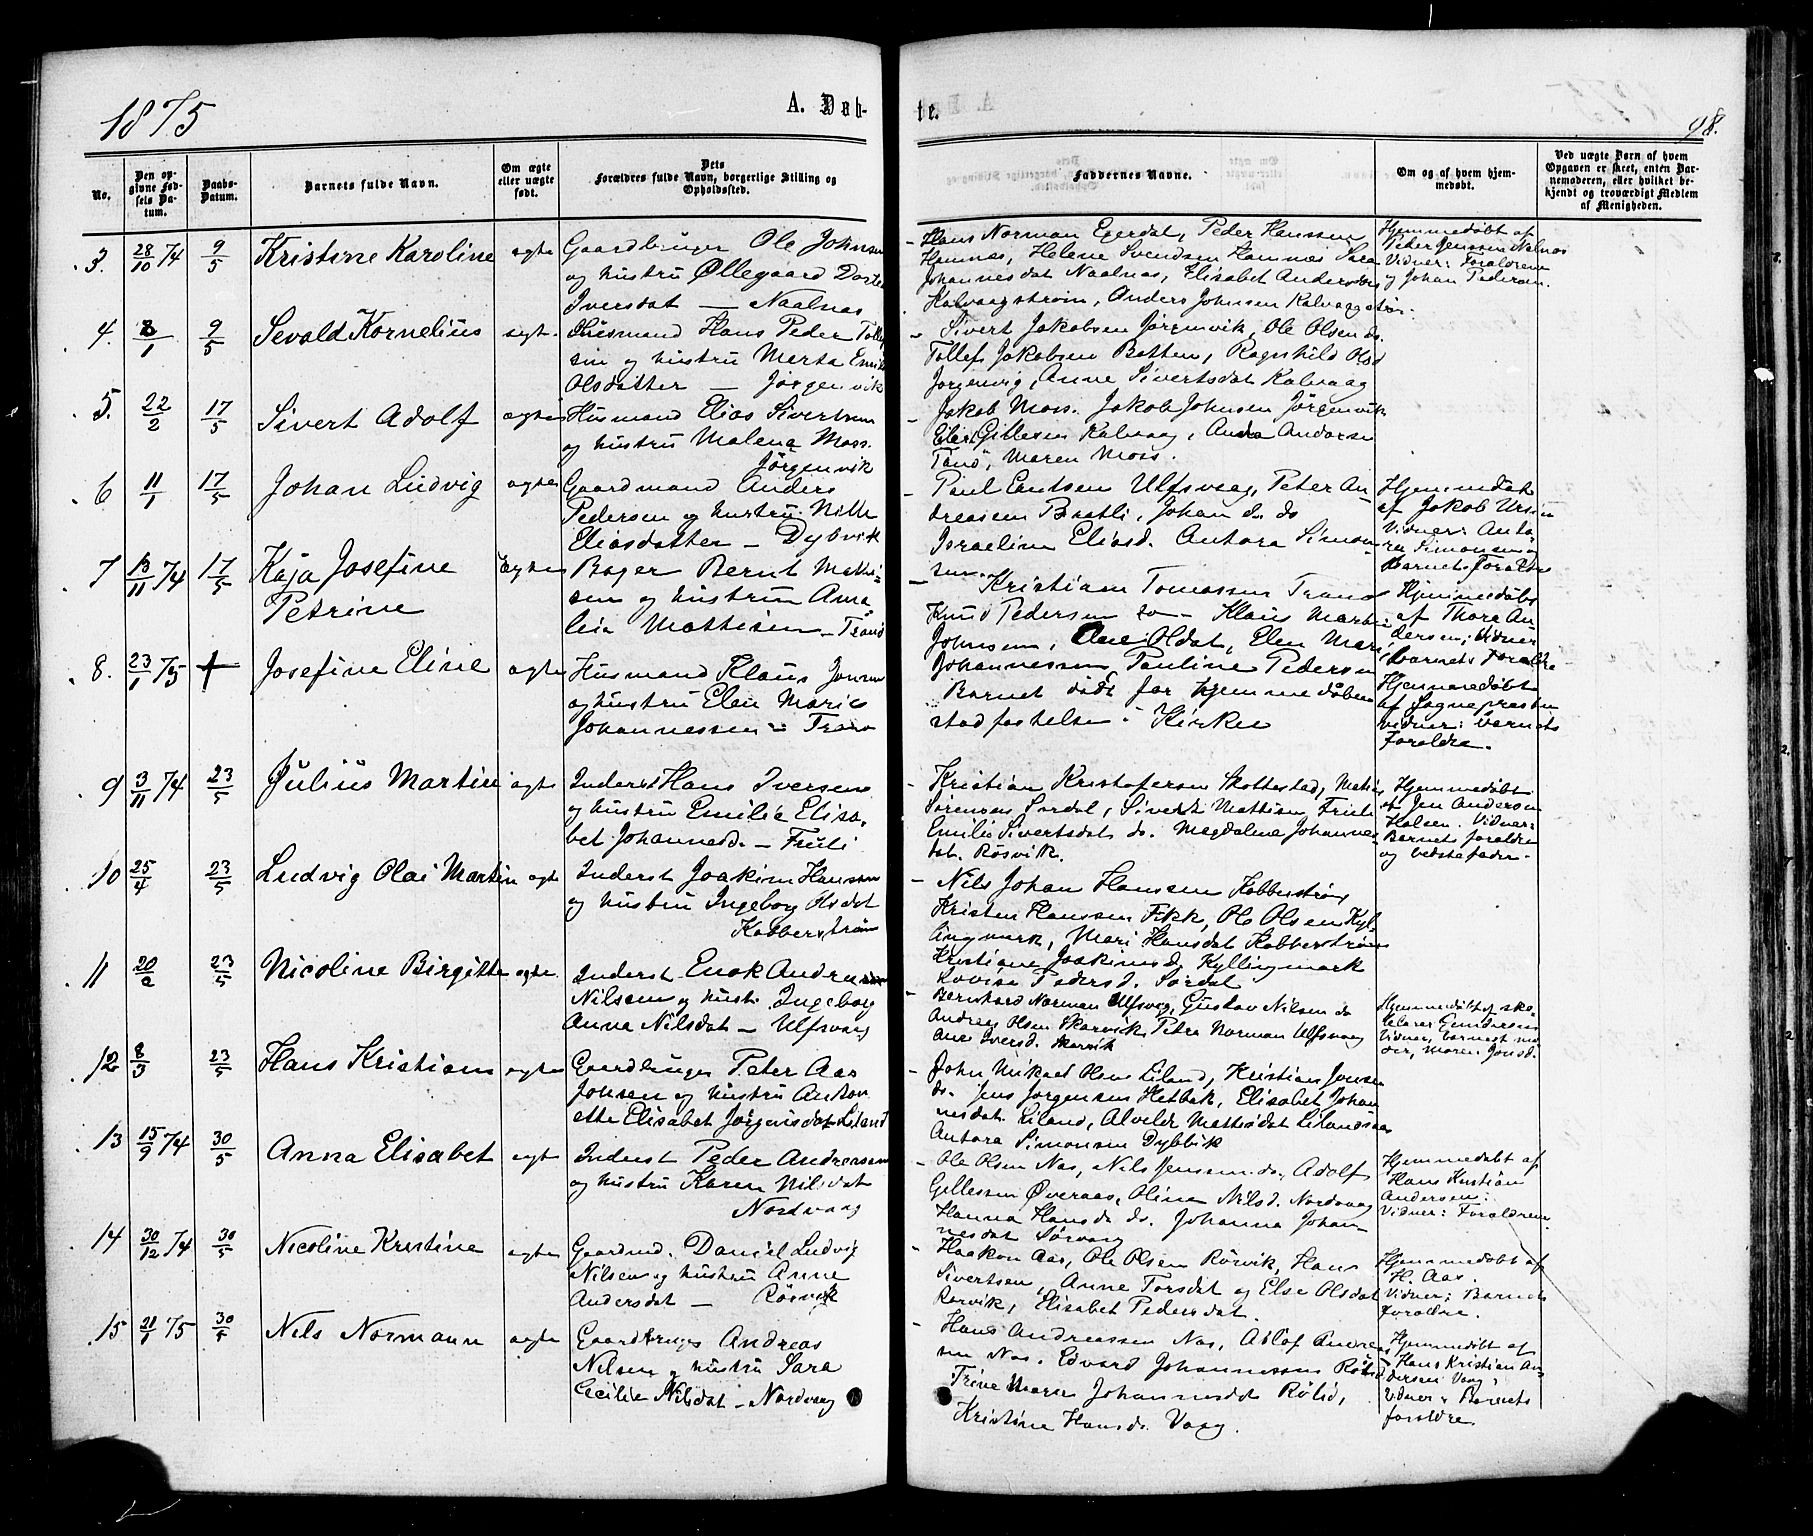 1875
A. Døb-
te.
98.
No.
Den op-
givne Fød-
sels Da-
tum.
Daabs-
Datum.
Barnets fulde Navn.
Om ægte
eller uægte
født.
Dets
Forældres fulde Navn, borgerlige Stilling og
Opholdssted.
Faddernes Navne.
Om og af hvem hjem-
medøbt.
Ved uægte Børn af hvem
Opgaven er skeet, enten Bar-
nemoderen, eller hvilket be-
kjendt og troværdigt Medlem
af Menigheden.
3. 28/10 74 9/5 Kristine Karoline ægte
Gaardbruger Ole Johnsen
og hustru Øllegaard Dorte
Iversdat — Naalnæs
Hans Norman Egerdal, Peder Hanssen
Hamnæs, Helene Svendsen Hamnæs Sara
Johannesdat Naalnæs, Elisabet Andersdat
Kalvaagstrøm, Anders Johnsen Kalvaagstrøm
Hjemmedøbt af
Peder Jenssen Nalnæs
Vidner: Forældrene
og Johan Pedersen.
4. 8/1 9/5 Sevald Kornelius ægte
Husmand Hans Peder Tollef
sen og hustru Merta Emilie
Olsdatter — Jørgenvik
Sivert Jakobsen Jørgenvik, Ole Olsen do.
Tollef Jakobsen Botten, Ragnhild Olsd
Jørgenvig, Anne Sivertsdat Kalvaag
5. 22/2 17/5 Sivert Adolf ægte
Husmand Elias Sivertsen
og hustru Malena Moss.
Jørgenvik
Jakob Moss. Jakob Johnsen Jørgenvik
Elias Gillesen Kalvaag, Anders Andersen
Tanø, Maren Moss.
6 11/1 17/5 Johan Ludvig ægte
Gaardmand Anders
Pedersen og hustru Nille
Eliasdatter — Dybvik
Paul Erntsen Ulfsvaag, Peter An-
dreasen Bratli, Johan do do
Israeline Eliasd. Antora Simon-
sen.
Hjemmedøbt
af Jakob Ursin
Vidner: Anto-
ra Simonsen og
Barnets Forældre
7 13/11 74 17/5 Kaja Josefine
Petrine
ægte
Bager Bernt Mathi-
sen og hustru Ama
leia Mattisen — Tranø
Kristian Tomassen Tranø
Knud Pedersen do — Klaus Martin
Johnsen, Ane Olsdat, Elen Mari
Johannessen, Pauline Pedersen
Hjemmedøbt
af Thora An-
dersen; vidner
barnets Forældre
8. 23/1 75 † Josefine Eline ægte
Husmand Klaus Jonsen
og hustru Elen Marie
Johannessen — Tranø
Barnet død før hjemmedåben
stadfæstelse i Kirken
Hjemmedøbt
af Sognepræsten
vidner: barnets
Forældre.
9 3/11 74 23/5 Julius Martin ægte
Inderst Hans Iversen
og hustru Emilie Elisa-
bet Johannesd. — Finli
Kristian Kristofersen Skottestad, Matias
Sørensen Sørdal, Sivert Mattisen
Emilie Sivertsdat do. Magdalena Johannes-
dat. Røsvik.
Hjemmedøbt
af Jen Andersen
Halsen. Vidner:
Barnets forældre
og bedstefader.
10 25/4 23/5 Ludvig Olai Martin ægte
Inderst Joakim Hansen
og hustru Ingeborg Olsdat
Kobberstrøm
Nils Johan Hansen Kobberstrøm
Kristen Hanssen Fikk, Ole Olsen Kyl-
lingmark, Mari Hansdat Kobberstrøm
Kristiane Joakimsd. Kyllingmark
Lovisa Pedersd. Sørdal
11 20/2 23/5 Nicoline Birgitte ægte
Inderst Enok Andreas
Nilsen og hust. Ingeborg
Anna Nilsdat — Ulfsvaag
Bernhard Norman Ulfsvag, Gustav Nilsen do
Andreas Olsen Skarvik, Petra Norman Ulfsvaag
Ane Iversd. Skarvik
Hjemmedøbt af sko-
lelærer Gundersen
Vidner, barnets mo
der, Maren Jonsd.
12 8/3 23/5 Hans Kristian ægte
Gaardbruger Peter Aas
Johnsen og hustru Anton
ette Elisabet Jørgensdat Leiland
John Mikael Olsen Liland, Kristian Jonsen
do. Jens Jørgensen Hetbak, Elisabet Johan
nesdat Liland, Alvilde Mattisdat Lilandsaas
Antora Simonsen Dybvik
13 15/9 74 30/5 Anna Elisabet ægt
Inderst Peder Andreassen
og hustru Karen Nilsdat
Nordvaag
Ole Olsen Næs, Nils Jensen do, Adolf
Gillessen Øveraas, Olina Nilsd. Nordvaag
Hanna Hansd. do. Johanna Johan-
nesdat Sørvaag
Hjemmedøbt af
Hans Kristian
Andersen:
Vidner: Forældrene
14 30/12 74 30/5 Nicoline Kristine ægte
Gaardmd. Daniel Ludvig
Nilsen og hustru Anne
Andersdat — Rørvik
Haakon Aas, Ole Olsen Rørvik, Hans
Sivertsen, Anne Torsdat og Else Olsdat
Rørvik, Elisabet Pedersdat.
Hjemmedøbt af
H. Aas.
Vidner: Barnets
forældre.
15 21/1 75 30/5 Nils Normann ægte
Gaardbruger Andreas
Nilsen og hustru Sara
Cecilia Nilsdat — Nordvaag
Hans Andreassen Næs, Adolf Andrea
sen Næs. Edvard Johannessen Røtid
Trine Maria Johannesdat Røtid,
Kristine Hansd. Vaag.
Hjemmedøbt af
Hans Kristian An-
dersen Vaag,
Vidner: Barnets
forældre